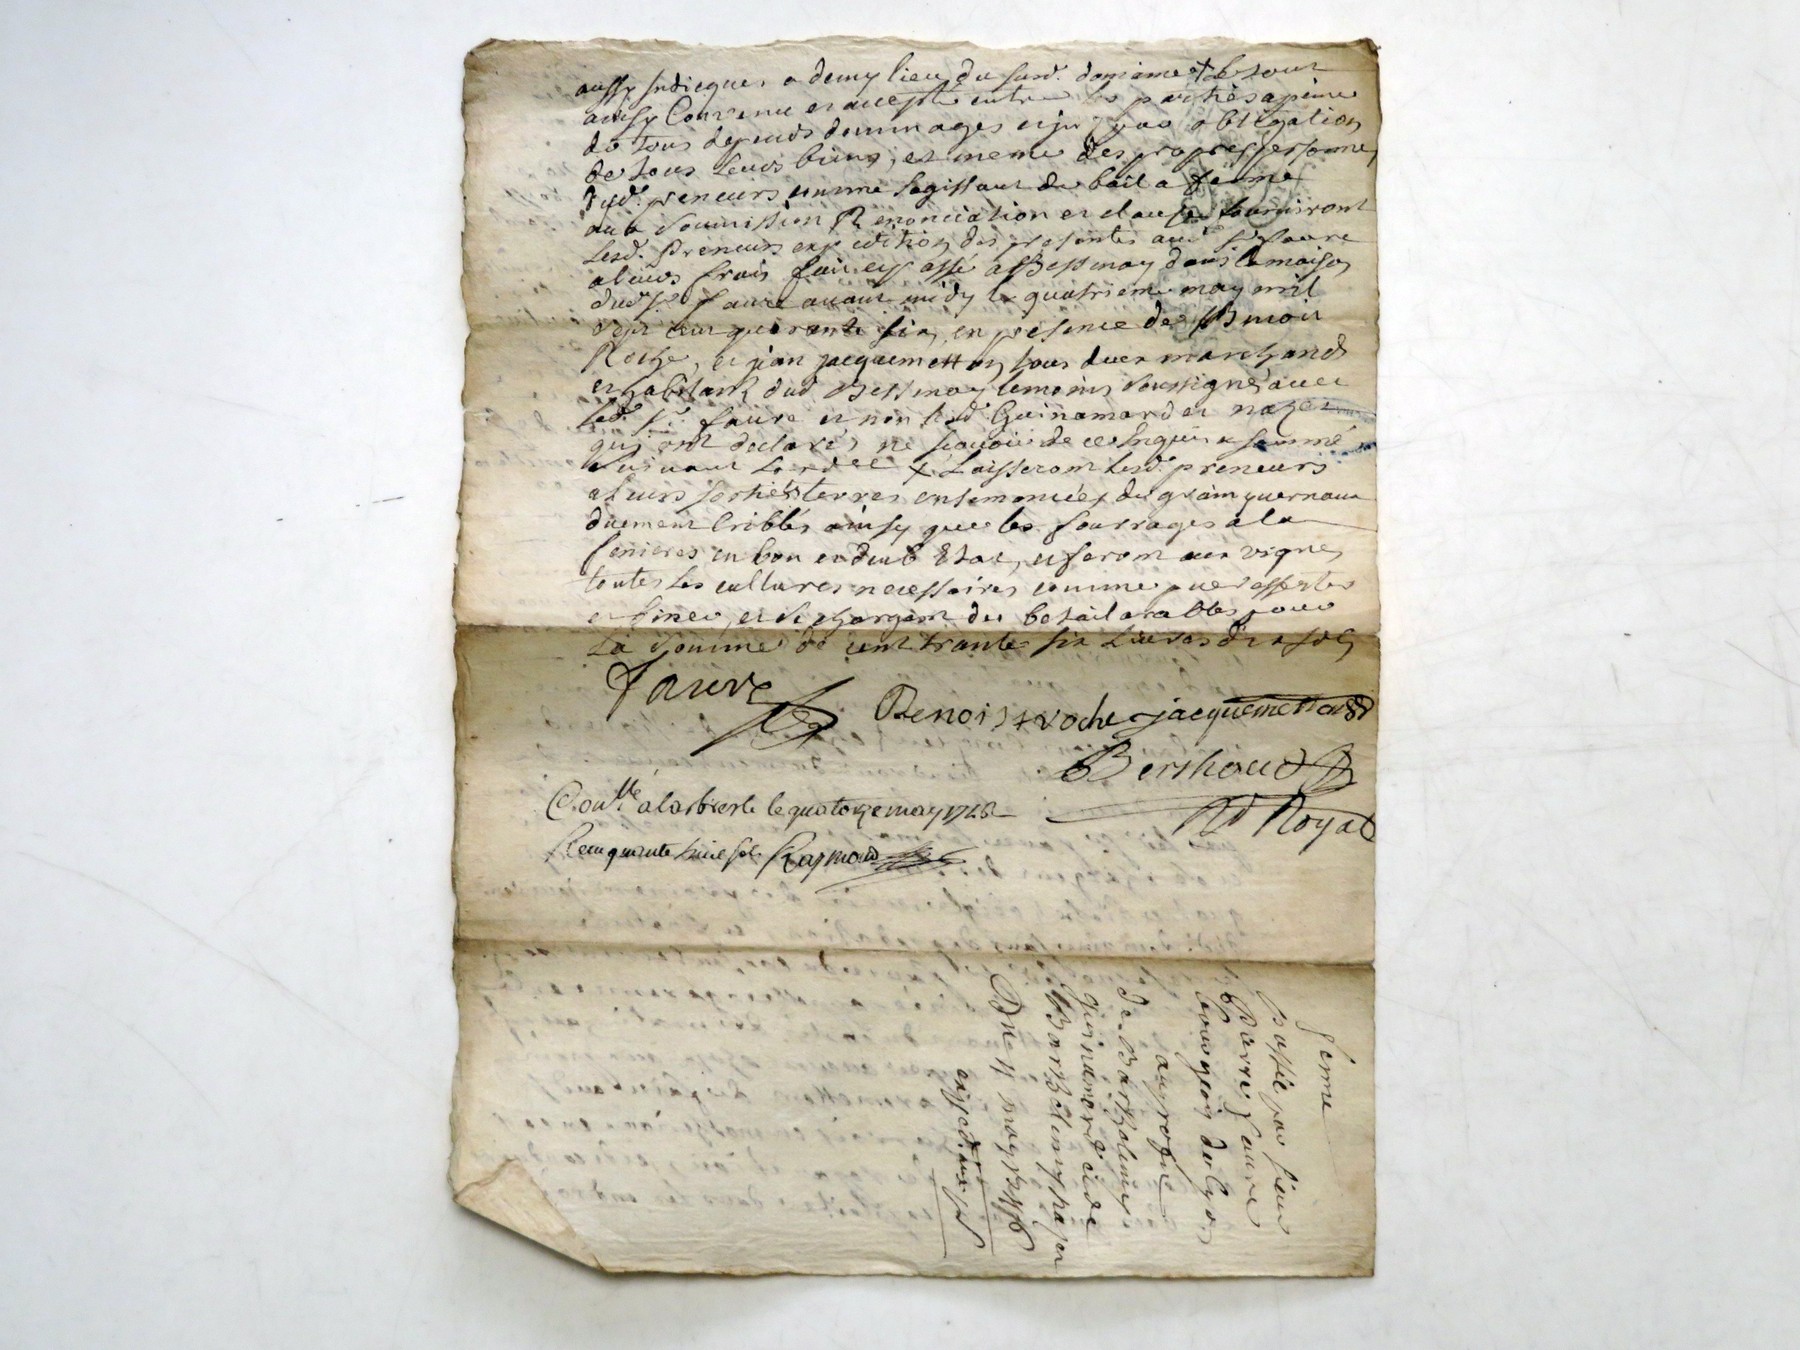 aussy indicques a demy lieu du susd. domaine + le tout
ainsy convenu et accepté entre les parties a peine
de tous depends dommages par obligation
de tous leurs biens, et meme des propres personnes
desd. preneurs comme sagissant de bail a ferme
aux soumission Renonciation et clauses fourniront
Lesd. Preneurs expedition des presentes aud. Sr faure
a leurs frais fait et passé a Bessenay dans la maison
dud. Sr faure avant midy le quatrieme may mil
sept cent quarante six, en présence de Benoit
Roche, et jean jacquemetton tous deux marchands
et habitants dud. Bessenay temoins soussignés avec
led. Sr. faure et non lesd. Guinamard et
qui ont declarés ne scavoir de ce enquis et sommé
suivant Lordce + Laisseront Lesd. preneurs
a Leurs sortie terres ensemencées du grain
duement criblés ainsy que les fourrages a la
en bon et dub Etat, et feront aux vignes
toutes les cultures necessaires comme
et finer, et se chargent du betail arables pour
La somme de cent trante six Livres dix sols
faure
Benoist roche jacquemetton
Berthoud
Nd Royal
Conllé a larbresle le quatorze may 1746
Reçu quarante huit sols Raymond
ferme
passée par sieur
Pierre faure
bourgeois de lyon
au profit
de Barthelemy
guinamard et de
Barthelemy
Du 4 may 1746
exped. aux sd